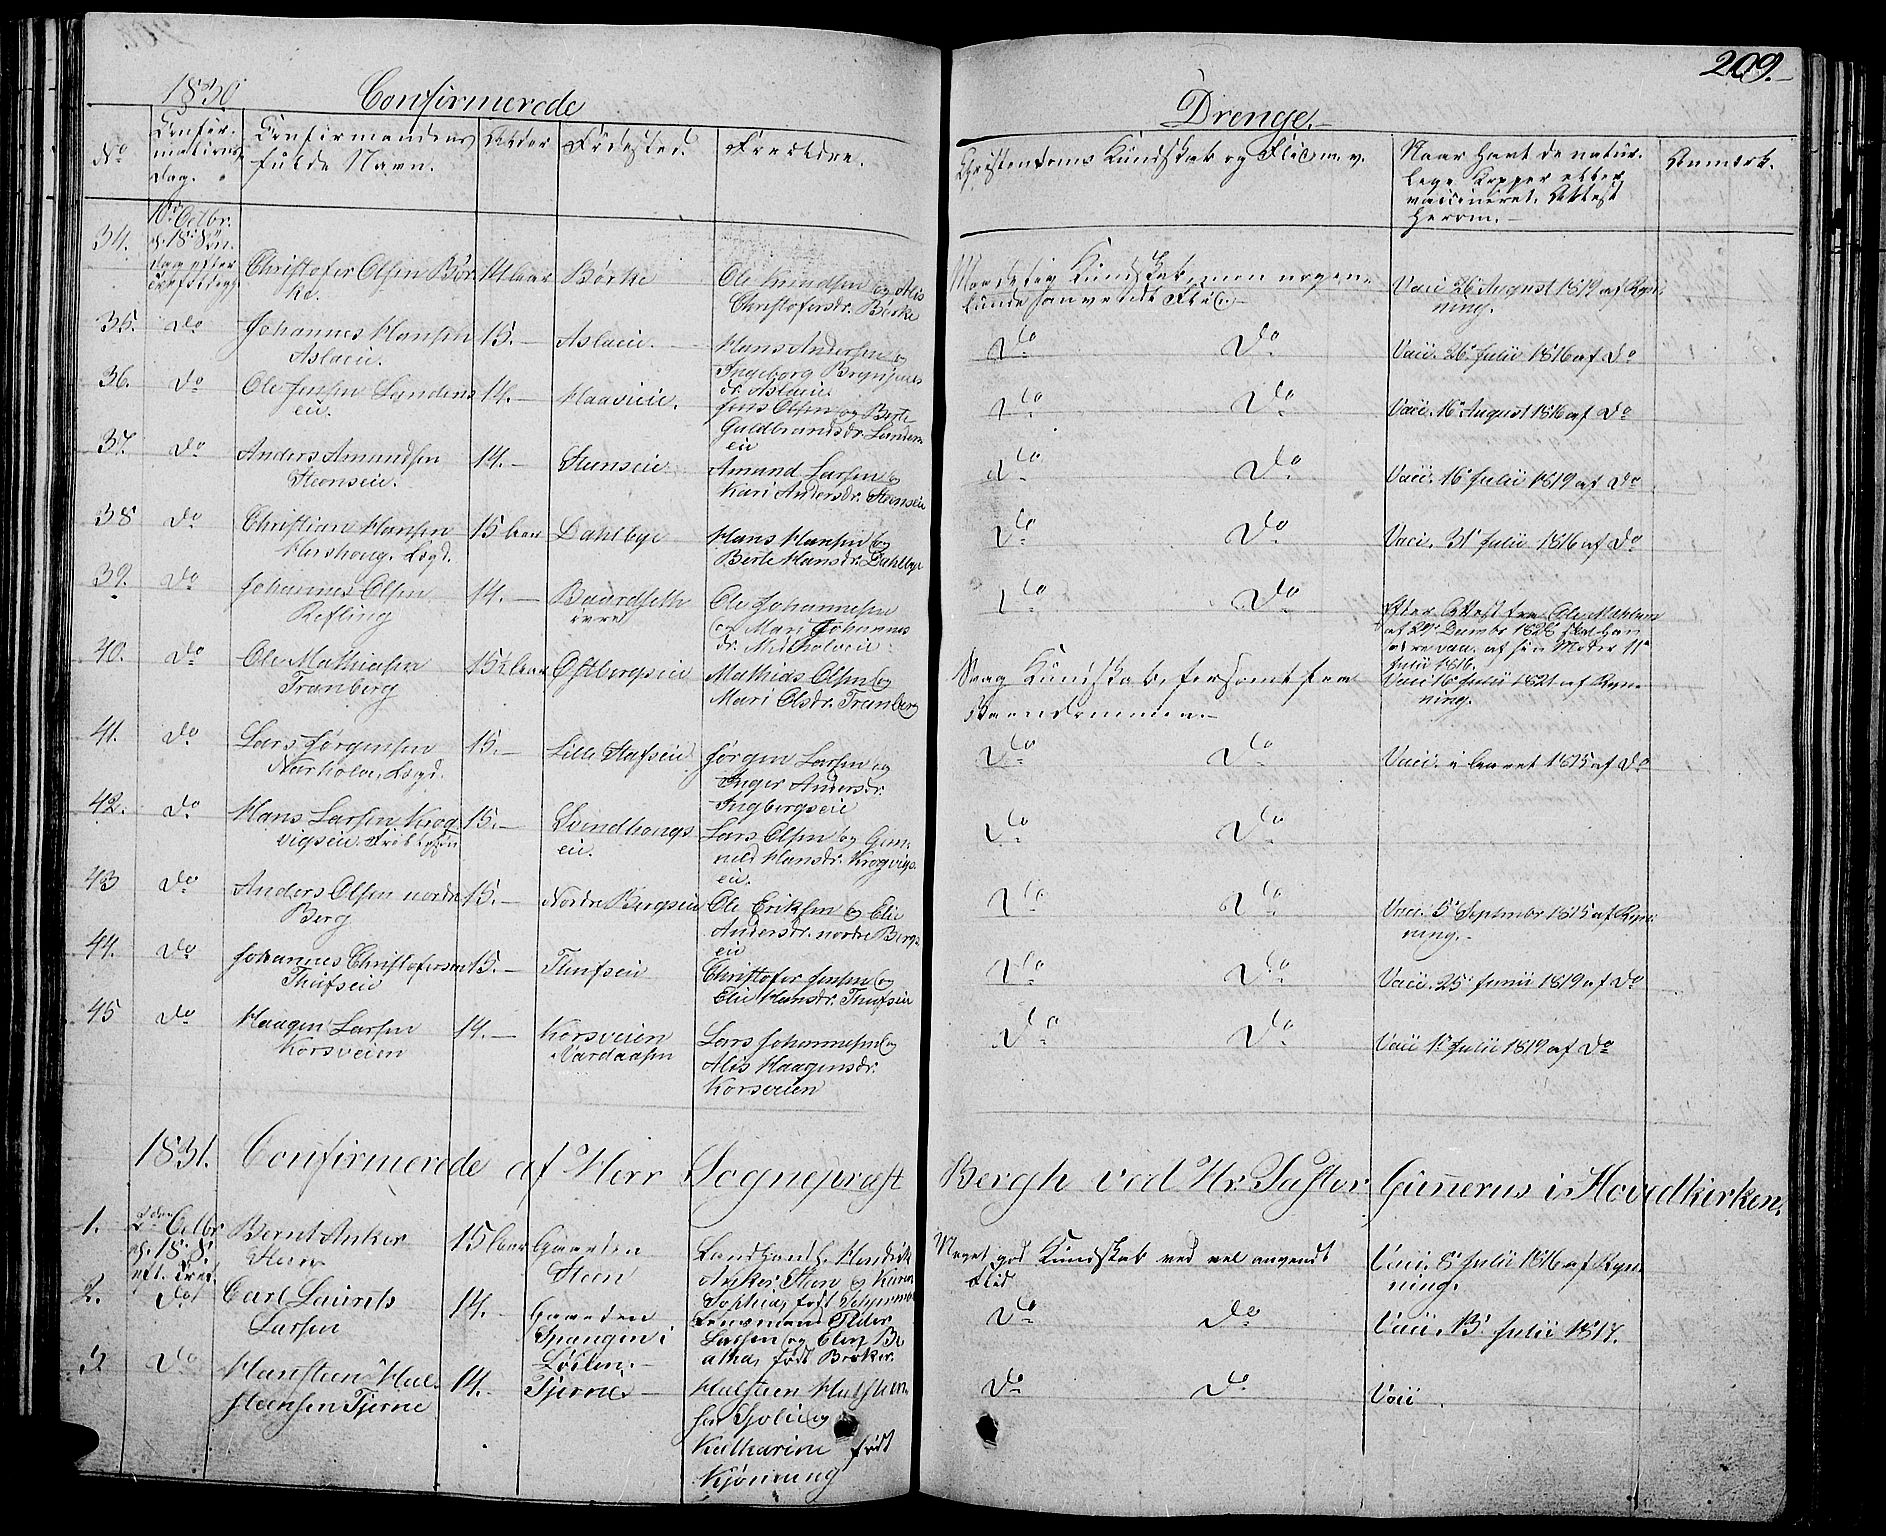 209.
1830 Confirmerede Drenge.
No
Confir-
mations
Dag.
Confirmandens
fulde Navn.
Alder
Födested.
Foreldre.
Christendoms Kundskab og Flid m. v.
Naar havt de natur-
lige Kopper eller
vaccineret. Attest
herom.
Anmærk.
34.
10de Octbr.
18 Søn.
dag efter
Christofer Olsen Bör
ke.
14 Aar
Børke
Ole Knudsen og Alis
Christofersdr. Börke
Maadelig Kundskab, men nogen-
lunde anvendt Flid.
Vacc. 26 August 1819 af Ryn-
ning.
35. Do
Johannes Hansen
Aslaeie.
15.
Aslaeie.
Hans Andersen og
Ingeborg
dr. Aslaeie
Do Do
Vacc. 26 Julii 1816 af Do
36. Do
Ole Jensen Landens
eie.
14.
Haavieie.
Jens Olsen og Berte
Guldbrandsdr. Landens
eie
Do Do
Vacc. 16 August 1816 af Do
37. Do
Anders Amundsen
Steenseie.
14.
Steenseie
Amund Larsen og
Kari Andersdr. Steenseie
Do Do
Vacc. 16 Julii 1819 af Do
38 Do
Christian Hansen
Hershoug. Lægd.
15 Aar
Dahlbye
Hans Hansen og
Berte Hansdr. Dahlbye
Do Do
Vacc. 31 Julii 1816 af Do
39. Do
Johannes Olsen
Refling
14.
Baardseth
övre
Ole Johannesen
og Mari Johannes
dr. Midholeie
Do Do
Efter Attest fra Ole Mæhlum
af 29 Decembr 1828 skal han
være vacc. af sin Moder 11
Julii 1816.
40. Do
Ole Mathiasen
Tranberg
15½ Aar
Østbergseie
Mathias Olsen og
Mari Olsdr. Tranberg
Svag Kundskab, forsömt fra
Barndommen.
Vacc. 16 Julii 1821 af Ryn-
ning.
41. Do
Lars Jørgensen
Narholm, Lægd.
15.
Lille Hafseie
Jørgen Larsen og
Inger Andersdr.
Ingbergseie
Do Do
Vacc. i Aaret 1815 af Do
42. Do
Hans Larsen Krog
vigseie
15.
Svendhougs
eie.
Lars Olsen og Gun-
nild Hansdr. Krogvigs
eie.
Do Do
43 Do
Anders Olsen nordre
Berg
15.
Nordre Bergseie
Ole Eriksen og Elie
Andersdr. nordre Berg-
eie
Do Do
Vacc. 5 Septembr 1815 af Ryn-
ning.
44. Do
Johannes Christofersen
Thufseie
15.
Thufseie
Christofer Jensen og
Elie Hansdr. Thufseie
Do Do
Vacc. 25 Junii 1819 af Do
45 Do
Haagen Larsen
Korsveien
14.
Korsveien
Aardaasen
Lars Johannesen og
Alis Haagensdr.
Korsveien
Do Do
Vacc 1 Julii 1819 af Do
1831. Confirmerede af Herr Sogneprest Bergh ved Hr. Pastor Gunerus i Hovedkirken.
1.
2den Octbr
18. S.
eft. Tref.
Bernt Anker
Steen
15 Aar
Gaarden
Steen
Landhandl. Hendrik
Anker Steen og Karen
Sophia, født
Meget god Kundskab ved vel anvendt
Flid
Vacc. 8 Julii 1816 af Ryn-
ning.
2. Do
Carl Laurits
Larsen
14.
Gaarden
Spangen i
Löiten.
Lensmand Peder
Larsen og Elen Be
atha, født Broker.
Do Do
Vacc. 13 Julii 1817.
3 Do
Hansteen Hal-
steensen Tjerne
14.
Tjerne
Halsteen Halsteen-
sen Sjolie og
Katharine født
Kjönnung
Do Do
Vacc